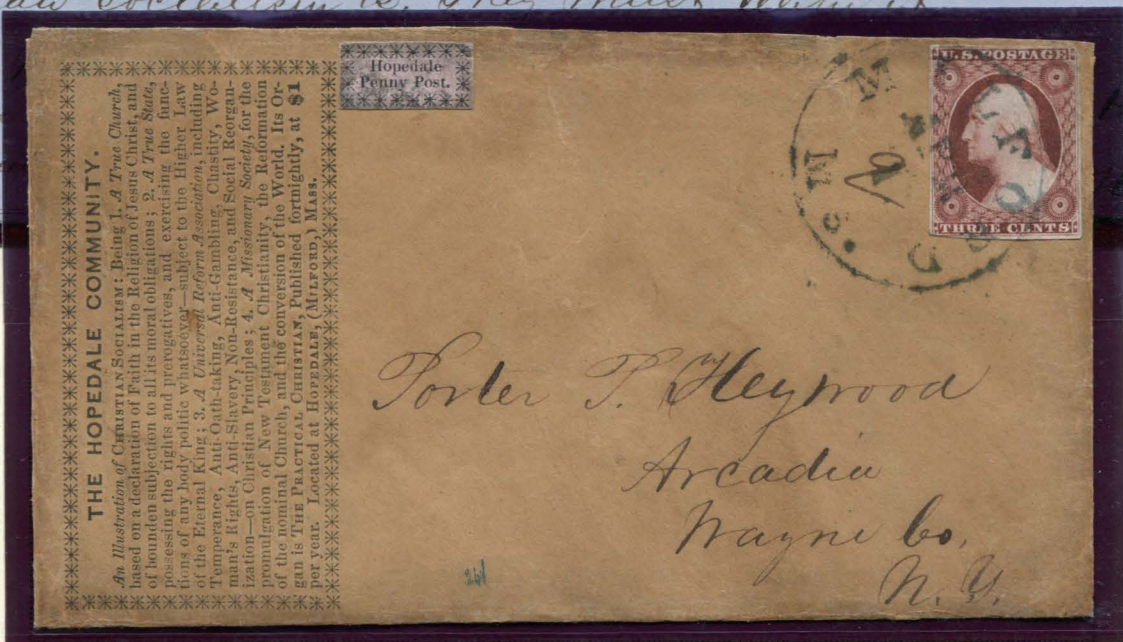 an socialism is. They must
THE HOPEDALE COMMUNITY.
An Illustration of CHRISTIAN SOCIALISM: Being 1. A True Church,
based on a declaration of Faith in the Religion of Jesus Christ, and
of bounden subjection to all its moral obligations; 2. A True State,
possessing the rights and prerogatives, and exercising the func-
tions of any body politic whatsoever—subject to the Higher Law
of the Eternal King; 3. A Universal Reform Association, including
Temperance, Anti-Oath-taking, Anti-Gambling, Chastity, Wo-
man's Rights, Anti-Slavery, Non-Resistance, and Social Reorgan-
ization—on Christian Principles; 4. A Missionary Society, for the
promulgation of New Testament Christianity, the Reformation
of the nominal Church, and the conversion of the World. Its Or-
gan is THE PRACTICAL CHRISTIAN, Published fortnightly, at $1
per year. Located at HOPEDALE, (MILFORD,) MASS.
Hopedale
Penny Post.
U.S. POSTAGE
THREE CENTS
MILFORD
MAR
9
MS.
Porter P. Heywood
Arcadia
Wayne Co.
N. Y.